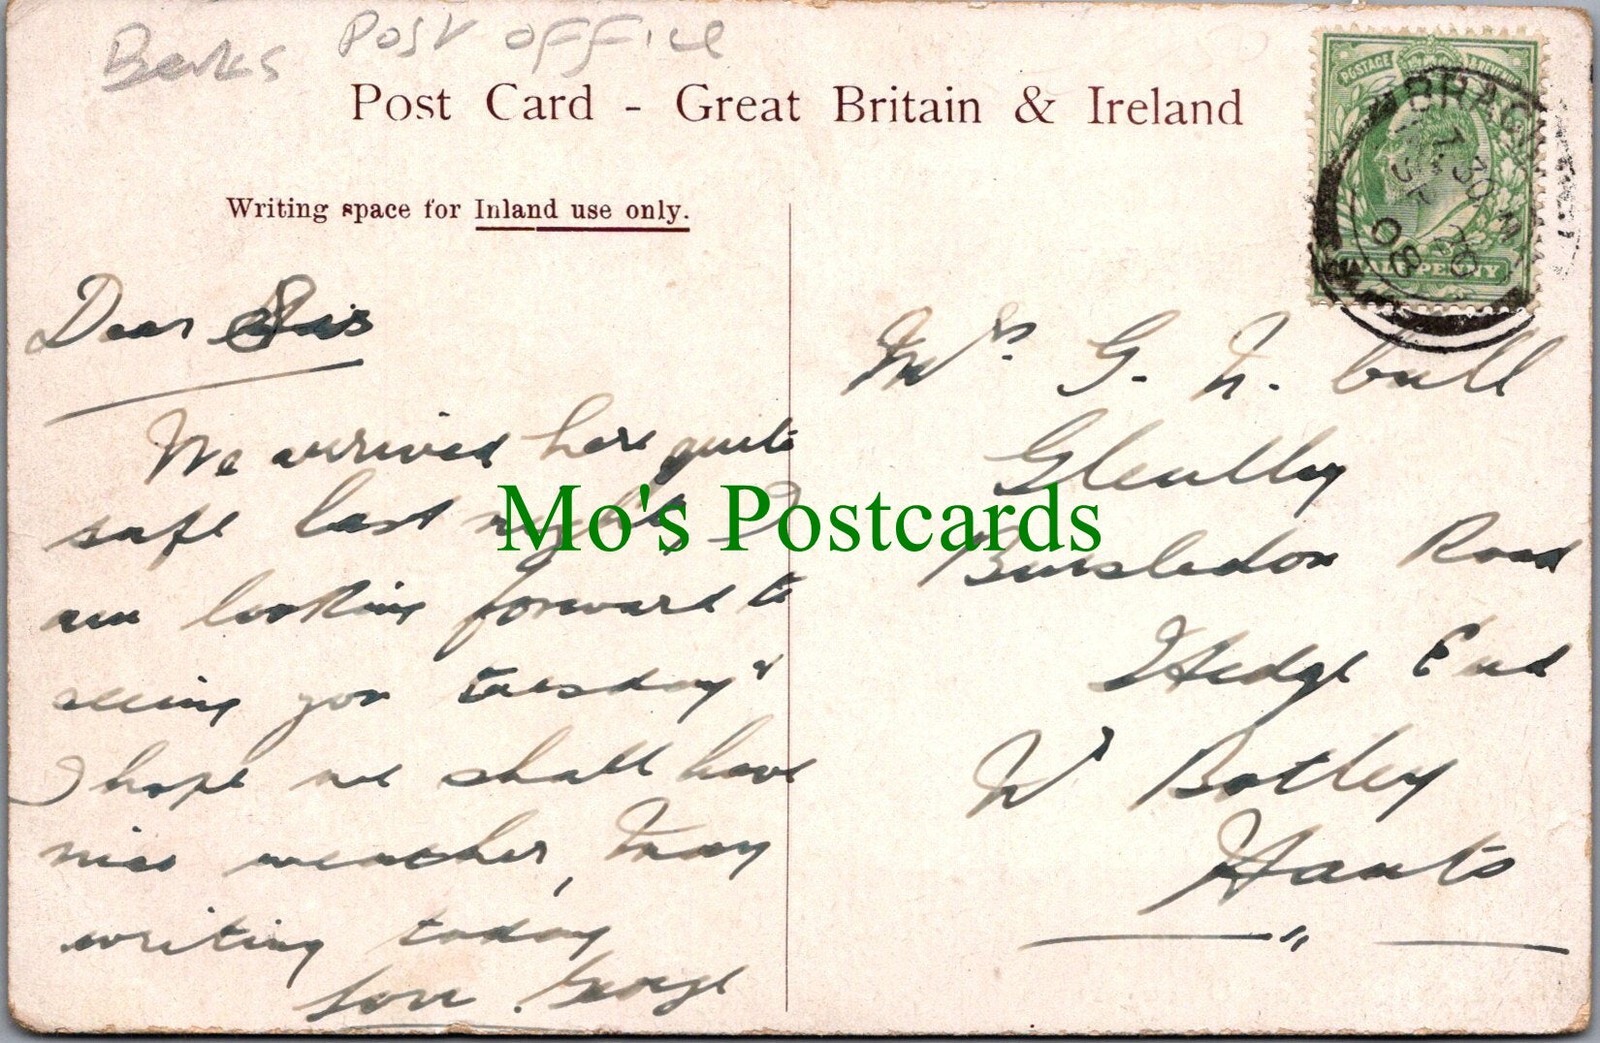 Berks Post Office
Post Card - Great Britain & Ireland
Writing space for Inland use only.
POSTAGE & REVENUE
BRACK
7.30 PM
OC 26
08
HALFPENNY
Dear Sis
We arrived here quite
safe last night, I
am looking forward to
seeing you tuesday &
I hope we shall have
nice weather, May
writing today
love George
Mrs G. N. Cull
Bursledon Road
Hedge End
Nr Botley
Hants
Mo's Postcards